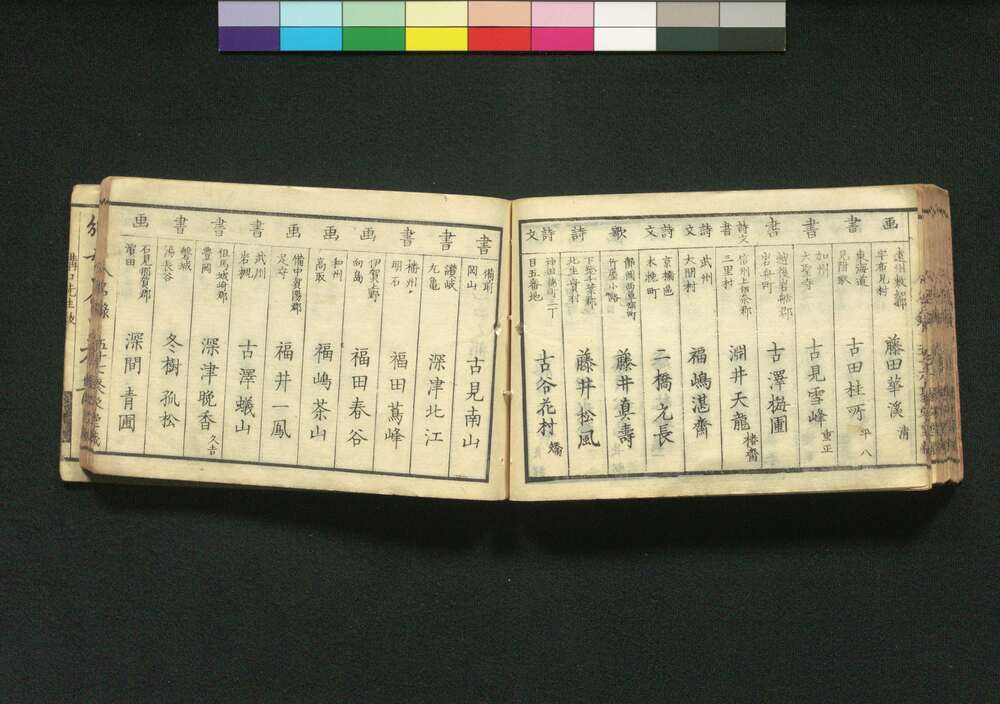 画
遠州敷智郡
宇布見村
藤田華溪 清
書
東海道
見附駅
古田桂所 平八
書
加州
大聖寺
古見雪峰 重正
書
越後岩船郡
岩舟町
古澤梅圃
詩文書
信州上伊奈郡
三里村
淵井天龍 椿齋
詩文
武州
大間村
福嶋湛齋
詩文
京橋邑
木挽町
二橋元長
歌
竹屋小路
藤井真壽
詩
下総千葉郡
北生実村
藤井松風
詩文
目五番地
古谷花村
書
備前
岡山
古見南山
書
讃岐
九亀
深津北江
書
播州
明石
福田蔦峰
画
伊賀上野
向島
福田春谷
画
和州
高取
福嶋茶山
画
備中賀陽郡
足守
福井一鳳
書
武州
岩槻
古澤蟻山
書
但馬城崎郡
豊岡
深津晩香 久吉
書
磐城
湯長谷
冬樹孤松
画
石見那賀郡
濱田
深間青圃